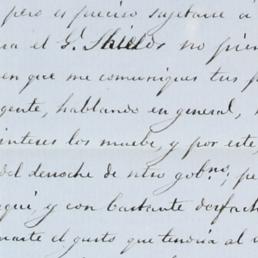 pero es preciso sujetarse á
el Gl. Shields no
en que me comuniques tus
gente, hablando en general,
interes los mueve, y por este,
del derroche de ntro gobno; pe
aquí, y con bastante desfach
el gusto que tendría al